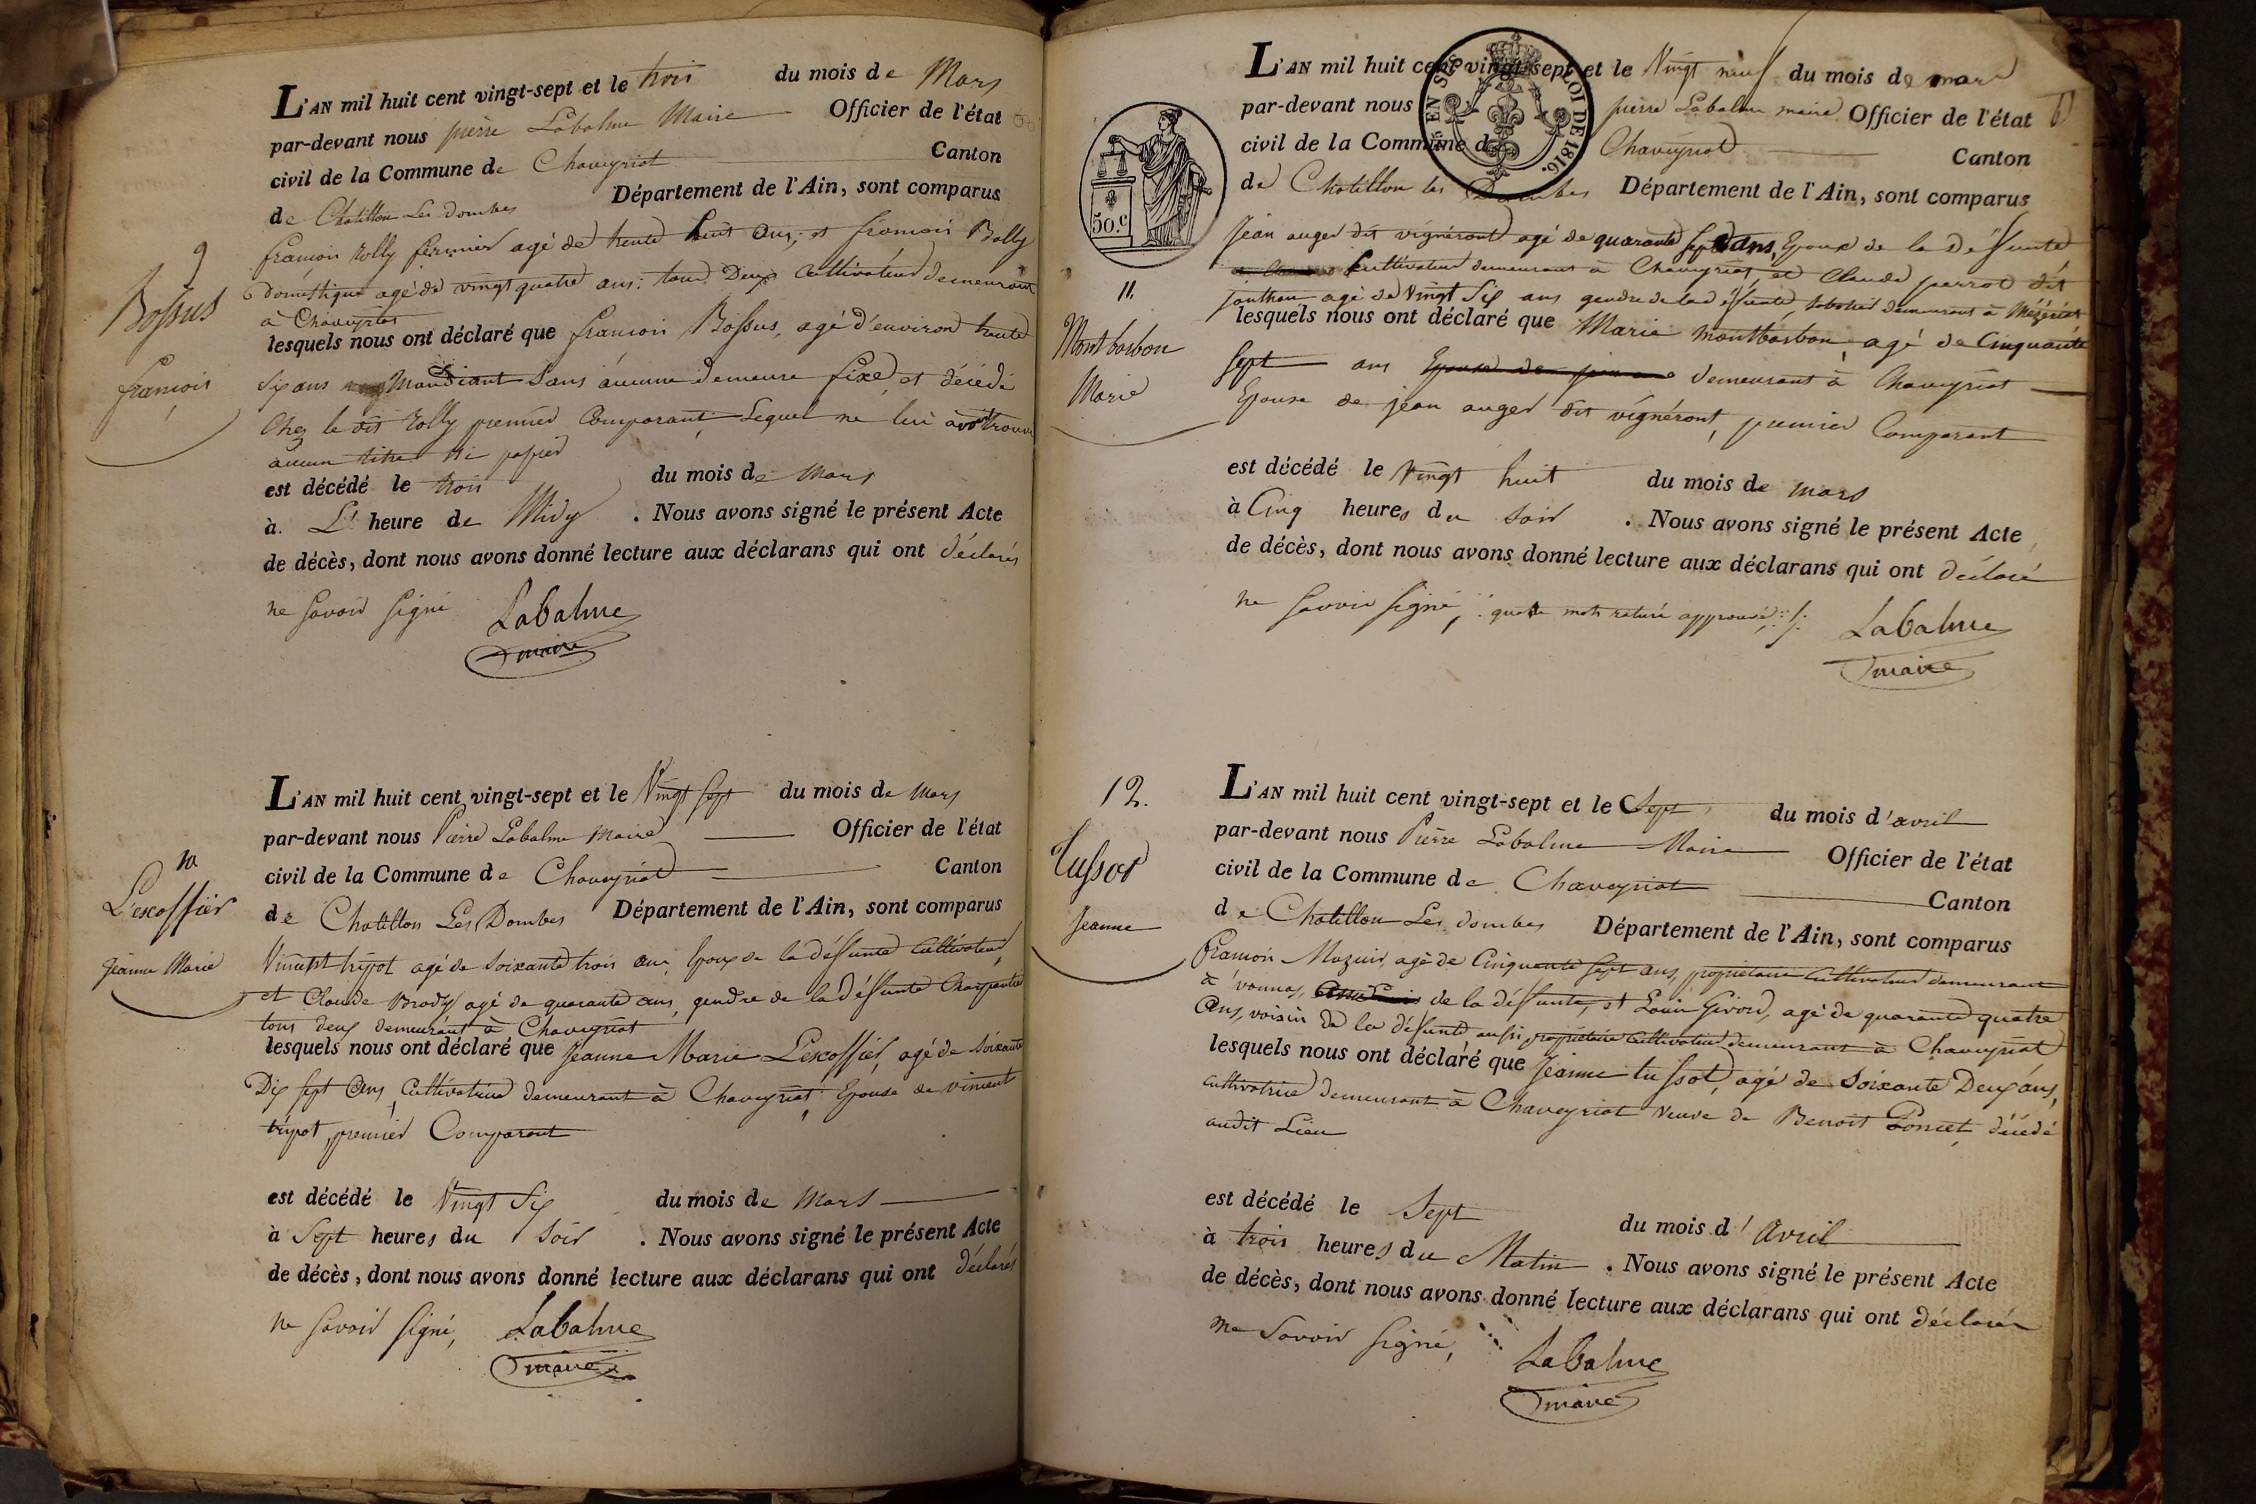 9
Bossus
françois
L'AN mil huit cent vingt-sept et le trois du mois de Mars
par-devant nous pierre Labalme Maire Officier de l'état
civil de la Commune de Chaveyriat Canton
de Chatillon Les dombes Département de l'Ain, sont comparus
françois Rolly fermier agé de trente huit ans, et françois Bolly
domestique agé de vingt quatre ans; tous Deux Cultivateurs demeurant
à Chaveyriat
lesquels nous ont déclaré que francois Bossus, agé d'environ trente
Six ans Mandiant Sans aucune demeure fixe, et décédé
Chez le dit Rolly premier Comparant, Lequel ne lui a trouvé
aucun titre Ni papier
est décédé le trois du mois de mars
à L' heure de Midy . Nous avons signé le présent Acte
de décès, dont nous avons donné lecture aux déclarans qui ont déclarés
ne Savoir Signé Labalme
maire
10
L'escoffier
Jeanne Marie
L'AN mil huit cent vingt-sept et le Vingt Sept du mois de Mars
par-devant nous Pierre Labalme Maire Officier de l'état
civil de la Commune de Chaveyriat Canton
de Chatillon Les Dombes Département de l'Ain, sont comparus
Vincent tripot agé de Soixante trois ans, Epoux de la défunte Cultivateur,
et Claude Brody agé de quarante ans, gendre de la Défunte Charpentier
tous deux demeurant à Chaveyriat
lesquels nous ont déclaré que Jeanne Marie Lescoffier, agé de Soixante
Dix Sept Ans, Cultivatrice demeurant à Chaveyriat, Epouse de vincent
tripot, premier Comparant
est décédé le Vingt Six du mois de Mars
à Sept heures du Soir . Nous avons signé le présent Acte
de décès, dont nous avons donné lecture aux déclarans qui ont déclarés
ne Savoir Signé, Labalme
maire
EN SUS LOI DE 1816.
50.c
11.
Montbarbon
Marie
L'AN mil huit cent vingt-sept et le Vingt neuf du mois de mars
par-devant nous pierre Labalme maire Officier de l'état
civil de la Commune de Chaveyriat Canton
de Chatillon les Dombes Département de l'Ain, sont comparus
Jean auger dit vignéront agé de quarante Sept ans, Epoux de la Défunte,
Cultivateur demeurant à Chaveyriat et Claude perrot dit
agé de Vingt Six ans gendre de la défunte, Sabotier demeurant à Mézériat
lesquels nous ont déclaré que Marie montbarbon, agé de Cinquante
Sept ans demeurant à Chaveyriat
Epouse de jean auger dit vignéront, premier Comparant
est décédé le Vingt huit du mois de mars
à Cinq heures du Soir . Nous avons signé le présent Acte
de décès, dont nous avons donné lecture aux déclarans qui ont déclaré
ne Savoir Signé, quatre mots raturé approuvé Labalme
maire
12.
Tussot
Jeanne
L'AN mil huit cent vingt-sept et le Sept du mois d'avril
par-devant nous Pierre Labalme Maire Officier de l'état
civil de la Commune de Chaveyriat Canton
de Chatillon Les dombes Département de l'Ain, sont comparus
françois Mozuir, agé de Cinquante Sept ans, propriétaire Cultivateur demeurant
à vonnas, de la défunte, et Louis Girord, agé de quarante quatre
Ans, voisin de la défunte aussi propriétaire Cultivateur demeurant à Chaveyriat
lesquels nous ont déclaré que Jeanne tussot, agé de Soixante Deux ans,
cultivatrice demeurant à Chaveyriat veuve de Benoit Poncet, décédé
audit Lieu
est décédé le Sept du mois d'Avril
à trois heures du Matin . Nous avons signé le présent Acte
de décès, dont nous avons donné lecture aux déclarans qui ont déclarés
ne Savoir Signé, Labalme
maire